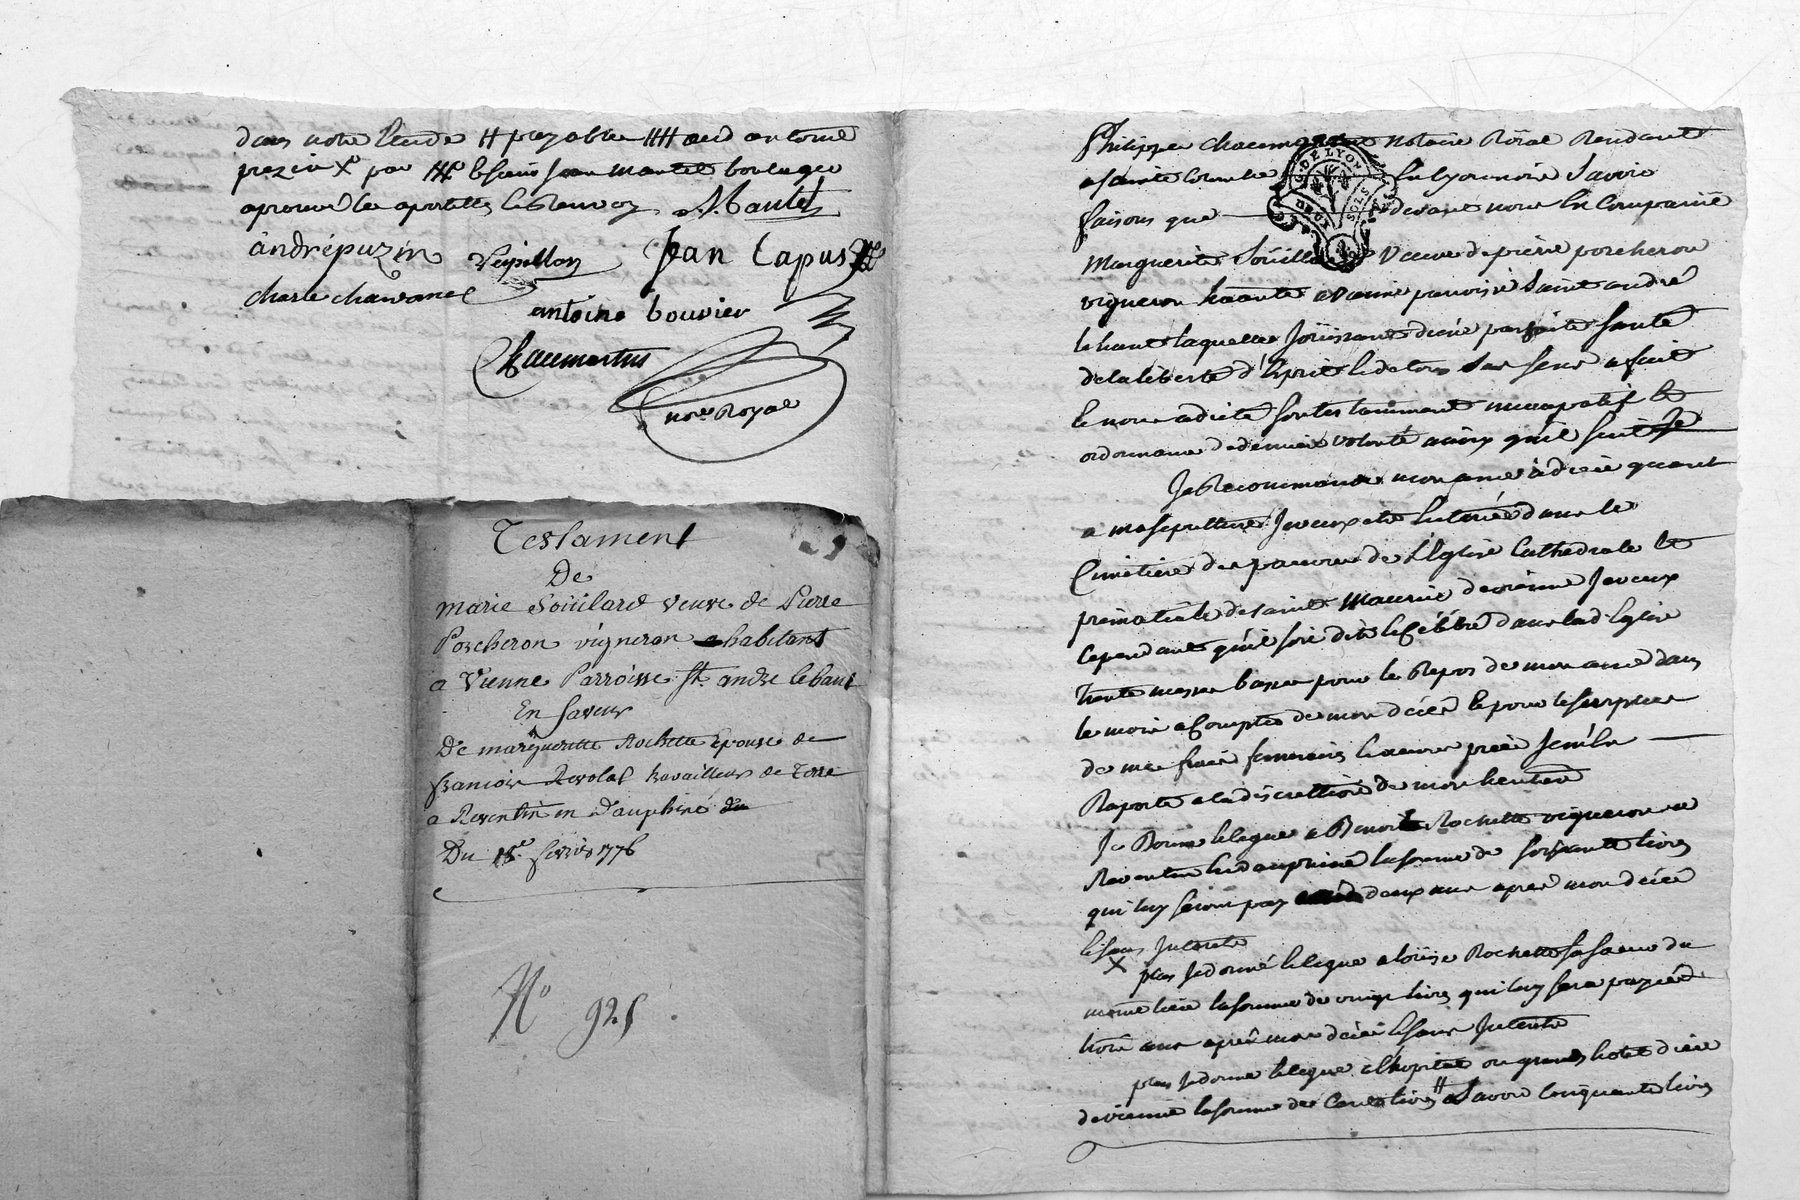 dans notre étude # payable #### aud antoine
par sieur jean mantel boulager
aprouvé les apostilles le renvoy A. Mantel
andrépuzin Vespillon Jean Capus
charle chavanel
antoine bouvier
Chaumartin
nore Royal
Testament
De
marie Soüilard veuve de Pierre
Porcheron vigneron habitant
a Vienne Parroisse St. andre le haut
En faveur
De marguerite Rochette Epouse de
francois Revolat travailleur de Terre
a Reventin en dauphiné du
Du 18e. fevrier 1776
No 925
Philippe chaumartin notaire Roïal Residant
a sainte Colombe En lyonnois Savoir
faisons que devant nous En Compairüe
G. DE LYON
DEUX SOLS
Marguerite Soüillard Veuve de pierre porcheron
vigneron habitante a Vienne paroisse Saint andré
le haut laquelle Joüissant dieu parfaite Santé
de la liberté d'Esprit Et de tous Ses Sens a fait
Et nous a dicté Son testamment nuncupatif Et
ordonnance de derniere volonté ainsy qu'il Suit
Je Recommande mon ame à dieu quant
a ma sepulture Je veux etre Enterrée dans le
Cimetiere des pauvres de L'Eglise Cathedrale Et
primatiale de saint Maurice de vienne Je veux
Cependant qu'il soit dit Et Célébré dans lad Eglise
trente messes basses pour le Repos de mon ame dans
le mois a Compter de mon décès Et pour le surplus
de mes frais funeraires Et œuvres pies Je m'en
Raporte a la discrettion de mon heritiere
Je Donne Et legue a Benoit Rochette vigneron a
Reventin En dauphiné la somme de soixante livres
qui luy seront pay deux ans apres mon décès
Et sans Interets
X plus Je donne Et legue a loüise Rochette sa sœur du
même lieu la somme de vingt livres qui luy sera payée
trois ans après mon décès Et sans Interets
plus Je donne Et legue à l'hopital ou grand hotel dieu
de vienne la somme de Cent livres # Savoir Cinquante livres